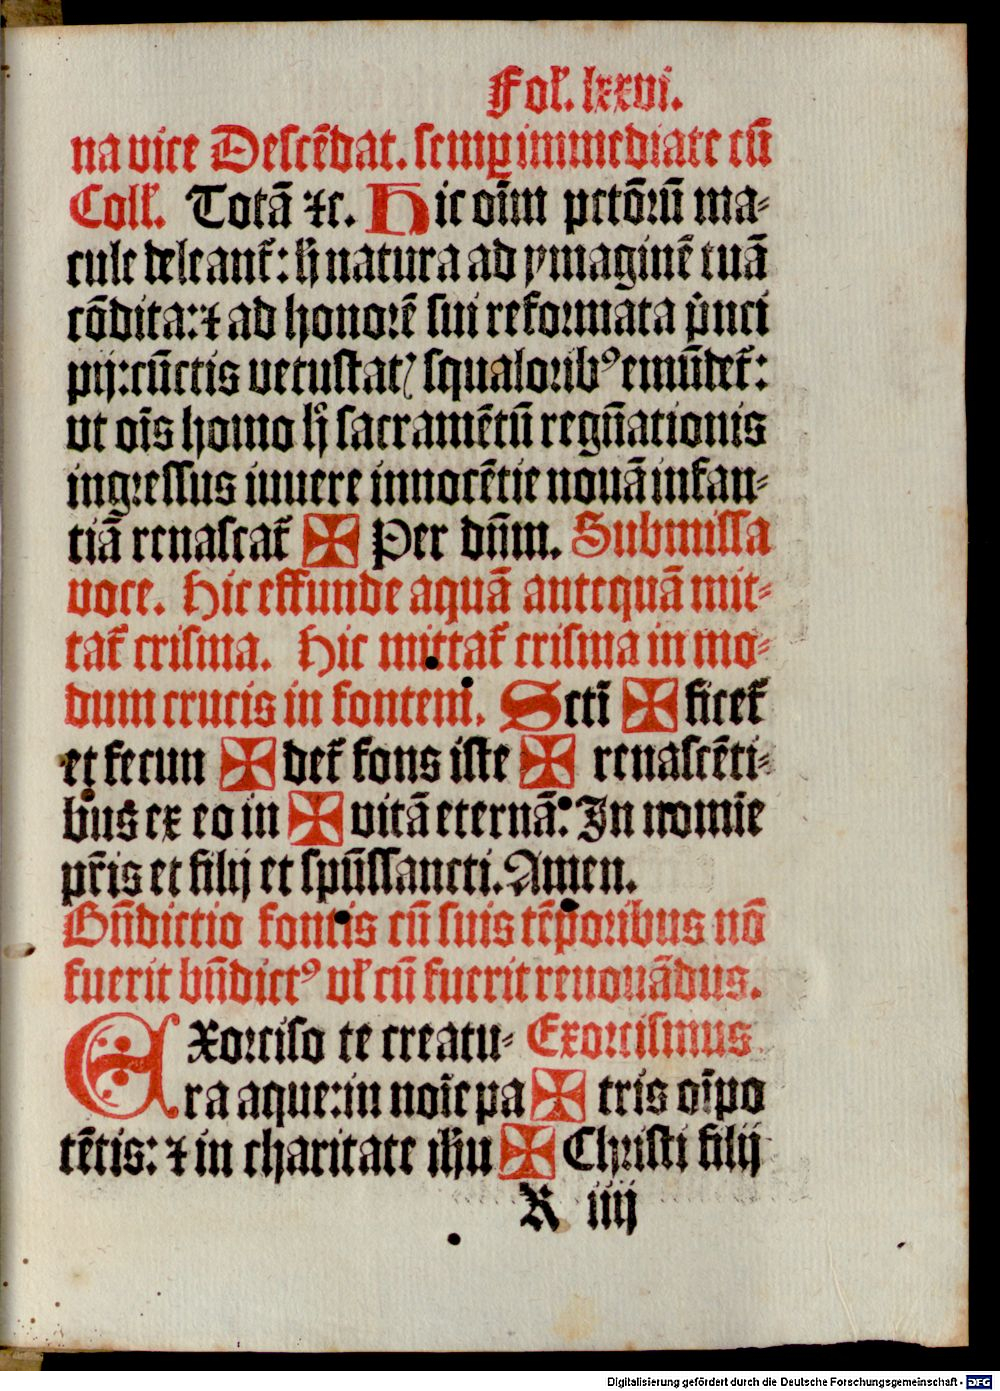 Fol. lxxvi.
na vice Descēdat. semꝑ immediate cū
Coll. Totā ⁊c. Hic oīm pctōrū ma-
cule deleant᷑: h̄ natura ad ymaginē tuā
cōdita: ⁊ ad honorē sui reformata p̄nci
pij: cūctis vetustatꝭ squaloribꝰ emūdet᷑:
vt oīs homo h̄ sacramētū regn̄ationis
ingressus in vere innocētie nouā infan-
tiā renascat᷑ ✠ Per dn̄m. Submissa
voce. Hic effunde aquā antequā mit-
tat᷑ crisma. Hic mittat᷑ crisma in mo-
dum crucis in fontem. Scti ✠ ficet᷑
et fecun ✠ det᷑ fons iste ✠ renascēti-
bus ex eo in ✠ vitā eternā. In nomīe
pr̄is et filij et spūssancti. Amen.
Bn̄dictio fontis cū suis tēporibus nō
fuerit bn̄dictꝰ vl̓ cū fuerit renouādus.
EXorciso te creatu- Exorcismus
ra aque: in noīe pa ✠ tris oīpo
tētis: ⁊ in charitate ih̄u ✠ Christi filij
K iiij
Digitalisierung gefördert durch die Deutsche Forschungsgemeinschaft - DFG